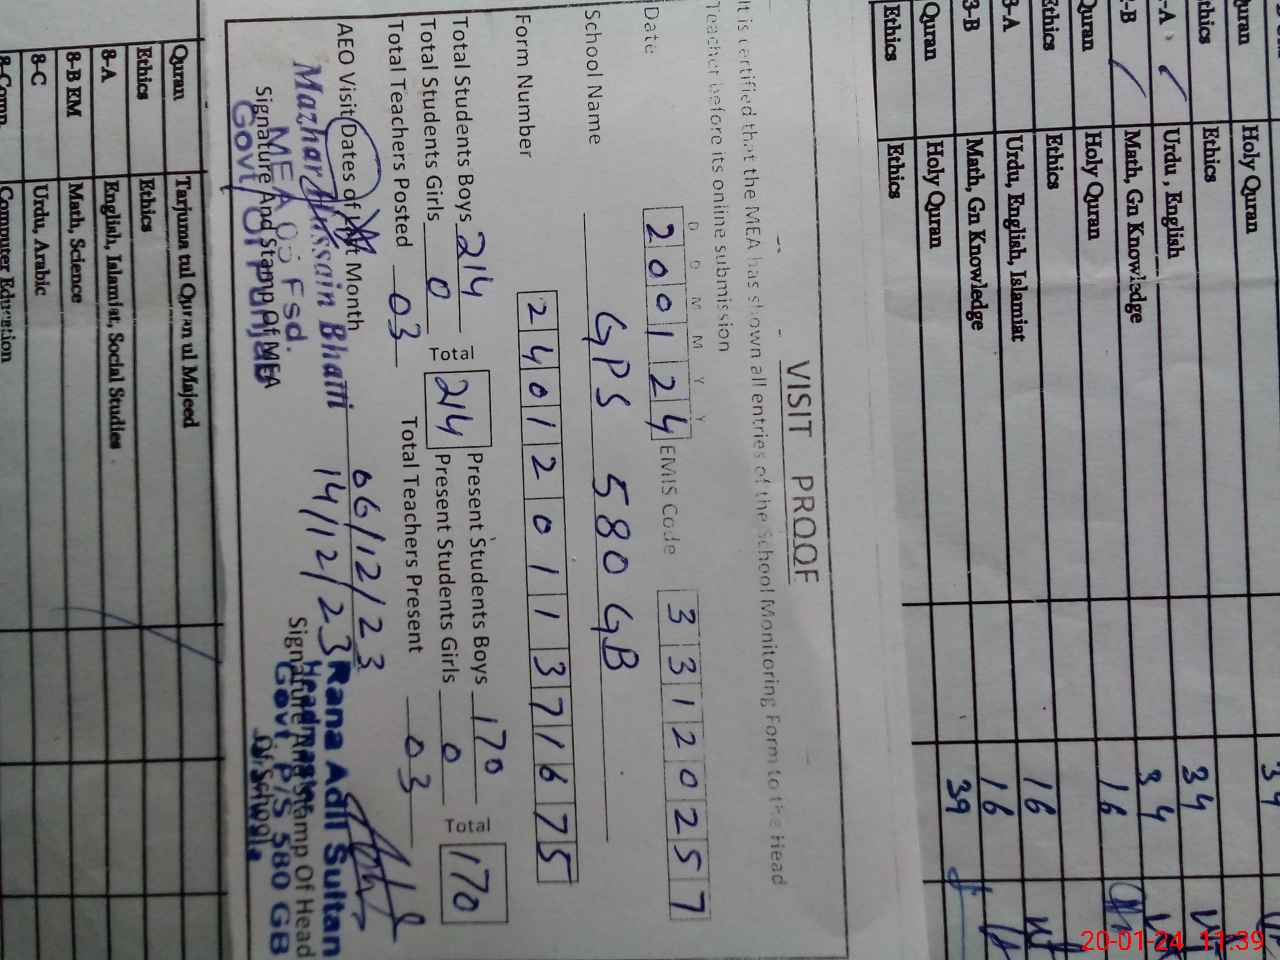 Quran Holy Quran 34
Ethics Ethics 34
-A Urdu , English 34
-B Math, Gn Knowledge 16
Quran Holy Quran
Ethics Ethics 16
3-A Urdu, English, Islamiat 16
3-B Math, Gn Knowledge 39
Quran Holy Quran
Ethics Ethics
VISIT PROOF
It is certified that the MEA has shown all entries of the School Monitoring Form to the Head
Teacher before its online submission
D D M M Y Y
Date 200124 EMIS Code 33120257
School Name GPS 580 GB
Form Number 24012011371675
Total Students Boys 214 Total 214 Present Students Boys 170 Total 170
Total Students Girls 0 Present Students Girls 0
Total Teachers Posted 03 Total Teachers Present 03
AEO Visit Dates of Month 06/12/23
14/12/23
Mazhar Hussain Bhatti
MEA 05 Fsd.
Govt. Of Punjab
Signature And Stamp Of MEA
Rana Adil Sultan
Headmaster
Govt. P/S 580 GB
Signature And Stamp Of Head
Of School
Quran Tarjuma tul Quran ul Majeed
Ethics Ethics
8-A English, Islamiat, Social Studies
8-B EM Math, Science
8-C Urdu, Arabic
8-Comp. Computer Education
20-01-24 11:39